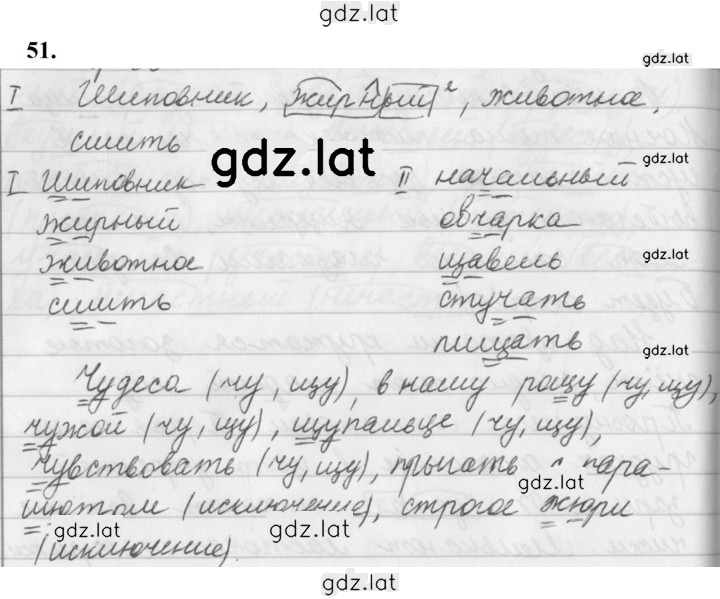 gdz.lat
51.
gdz.lat
I Шиповник, жирный², животное,
сшить
gdz.lat
gdz.lat
I Шиповник II начальный
жирный овчарка
животное щавель
gdz.lat
сшить стучать
пищать
gdz.lat
Чудеса (чу, щу), в нашу рощу (чу, щу),
чужой (чу, щу), щупальце (чу, щу),
чувствовать (чу, щу), прыгать с пара-
gdz.lat
шютом (исключение), строгое жюри
gdz.lat gdz.lat
(исключение).
gdz.lat